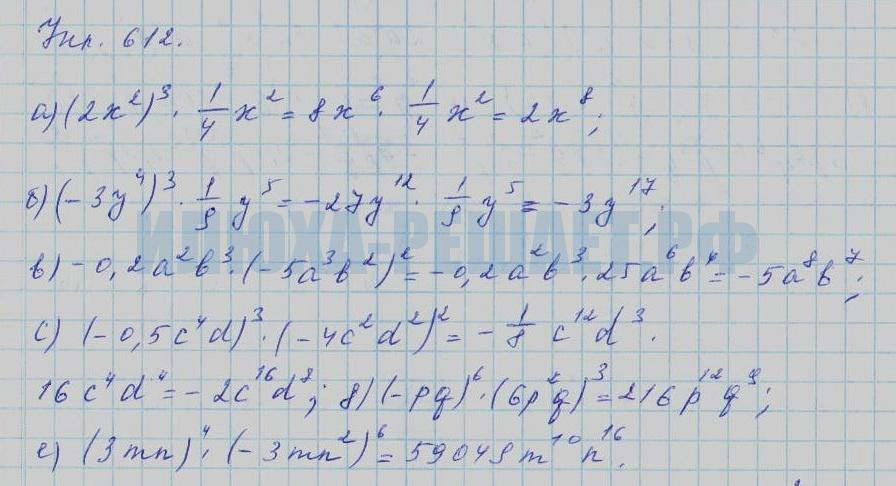 Упр. 612.
а) (2x²)³ · 1/4 x² = 8x⁶ · 1/4 x² = 2x⁸;
б) (-3y⁴)³ · 1/9 y⁵ = -27y¹² · 1/9 y⁵ = -3y¹⁷;
ИЛЮХА-РЕШАЕТ.РФ
в) -0,2a²b³ · (-5a³b²)² = -0,2a²b³ · 25a⁶b⁴ = -5a⁸b⁷;
с) (-0,5c⁴d)³ · (-4c²d²)² = -1/8 c¹²d³ ·
16c⁴d⁴ = -2c¹⁶d⁸; д) (-pq)⁶ · (6p²q)³ = 216p¹²q⁹;
е) (3mn)⁴ · (-3mn²)⁶ = 59049m¹⁰n¹⁶.